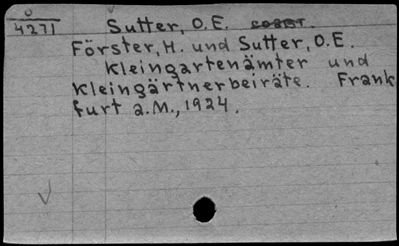 U
4271
Sutter, O.E.
Förster, H. und Sutter, O.E.
Kleingartenämter und
Kleingärtnerbeiräte. Frank
furt a.M., 1924.